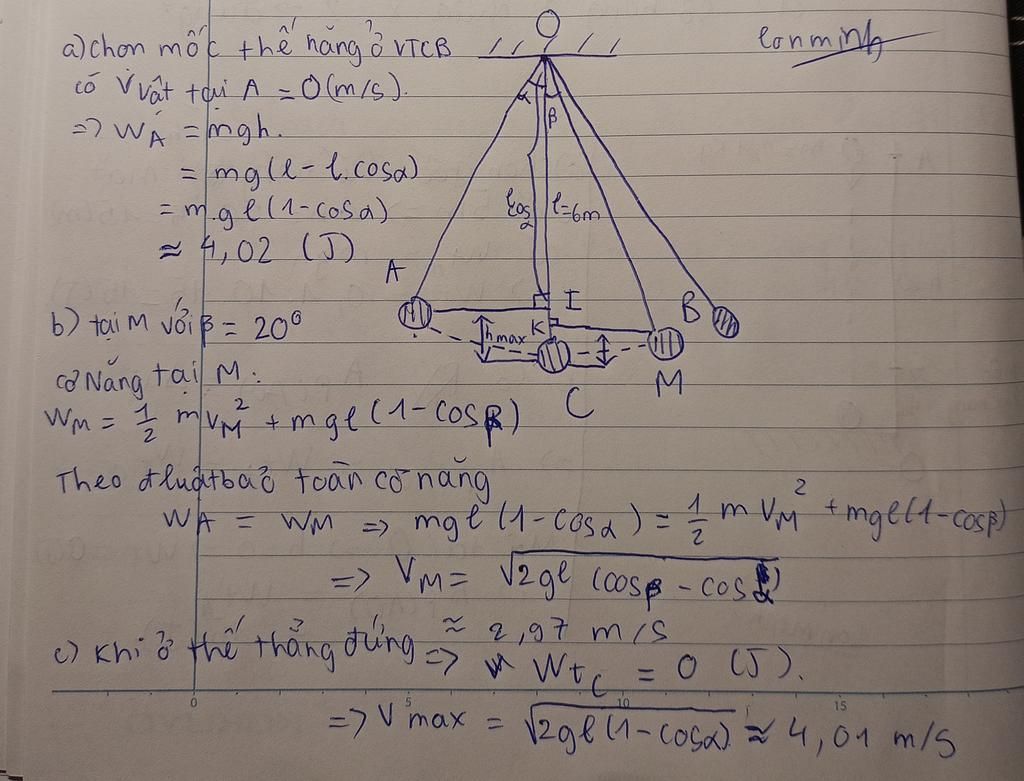 a) chọn mốc thế năng ở VTCB
conminh
có V vật tại A = 0 (m/s).
=> W_A = mgh.
= mg(l - l.cosα)
= m.gl(1-cosα)
≈ 4,02 (J)
α
β
lcosα
l=6m
A
I
B
K
hmax
M
C
b) tại M với β = 20°
cơ Năng tại M:
W_M = 1/2 mV_M² + mgl(1-cosβ)
Theo đluật bảo toàn cơ năng
W_A = W_M => mgl(1-cosα) = 1/2 m V_M² + mgl(1-cosβ)
=> V_M = √2gl (cosβ - cosα)
≈ 2,97 m/s
c) Khi ở thế thẳng đứng => Wt_C = 0 (J).
0 5 10 15
=> V max = √2gl(1-cosα) ≈ 4,01 m/s